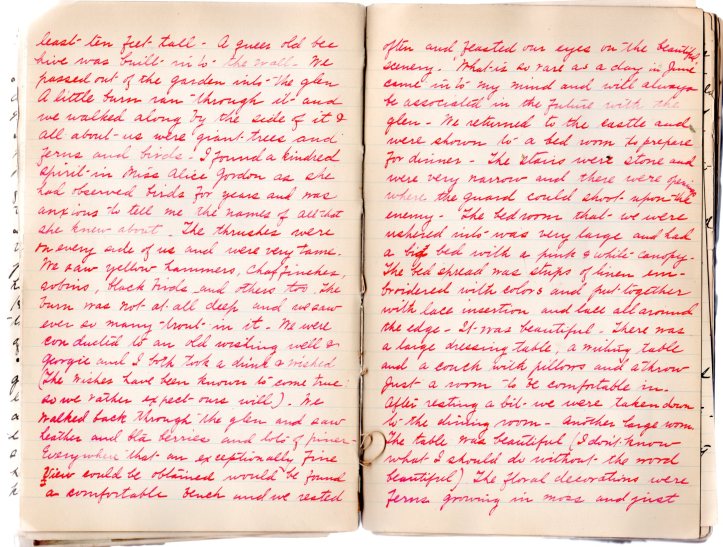 least ten feet tall - A queer old bee
hive was built into the wall. We
passed out of the garden into the glen
A little burn ran through it and
we walked along by the side of it &
all about us were giant trees and
ferns and birds - I found a kindred
spirit in Miss Alice Gordon as she
had observed birds for years and was
anxious to tell me the names of all that
she knew about. The thrushes were
on every side of us and were very tame.
We saw yellow hammers, Chaffinches,
robins, black birds and others too. The
burn was not at all deep and we saw
ever so many trout in it - We were
conducted to an old wishing well &
Georgie and I both took a drink & wished
(The wishes have been known to come true
so we rather expect ours will) - We
walked back through the glen and saw
heather and bla berries and lots of pines -
Everywhere that an exceptionally fine
view could be obtained would be found
a comfortable bench and we rested
often and feasted our eyes on the beautiful
scenery. "What is so rare as a day in June
came into my mind and will always
be associated in the future with the
glen - We returned to the castle and
were shown to a bed room to prepare
for dinner - The stairs were stone and
were very narrow and there were
where the guard could shoot upon the
enemy - The bed room that we were
ushered into was very large and had
a big bed with a pink & white canopy -
The bed spread was strips of linen em-
broidered with colors and put together
with lace insertion and lace all around
the edge - It was beautiful - There was
a large dressing table, a writing table
and a couch with pillows and a throw
Just a room to be comfortable in -
After resting a bit we were taken down
to the dining room - Another large room
The table was beautiful (I don't know
what I should do without the word
beautiful) The floral decorations were
ferns growing in moss and just